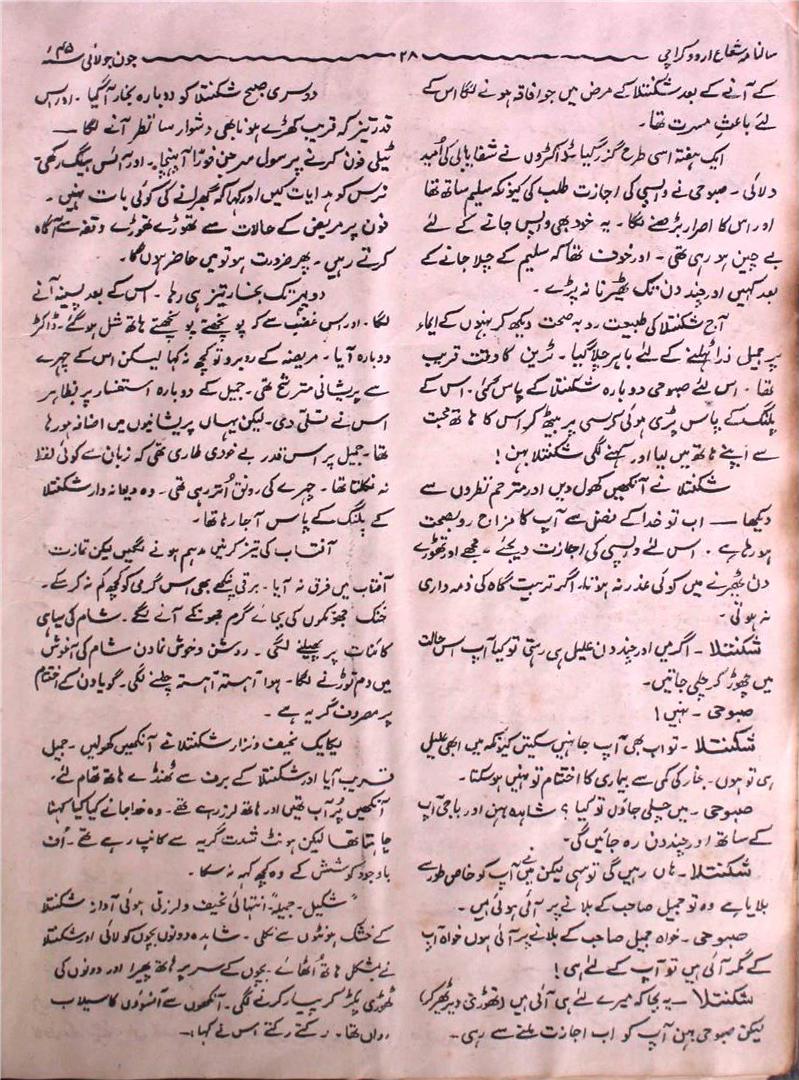 سالنامہ شعاع اردو کراچی
۲۸
جون جولائی ۴۵ء
کے آنے کے بعد شکنتلا کے مرض میں جو افاقہ ہونے لگا اس کے
لئے باعثِ مسرت تھا۔
ایک ہفتہ اسی طرح گزر گیا ڈاکٹروں نے شفایابی کی اُمید
دلائی۔ صبوحی نے واپسی کی اجازت طلب کی کیونکہ سلیم ساتھ تھا
اور اس کا اصرار بڑھنے لگا۔ یہ خود بھی واپس جانے کے لئے
بے چین ہو رہی تھی۔ اور خوف تھا کہ سلیم کے چلا جانے کے
بعد کہیں اور چند دن تک ٹھیرنا نہ پڑے۔
آج شکنتلا کی طبیعت رو بہ صحت دیکھ کر بہنوں کے ایماء
پر جمیل ذرا ٹہلنے کے لئے باہر چلا گیا۔ ٹرین کا وقت قریب
تھا۔ اس لئے صبوحی دوبارہ شکنتلا کے پاس گئی۔ اس کے
پلنگ کے پاس پڑی ہوئی کرسی پر بیٹھ کر اس کا ہاتھ محبت
سے اپنے ہاتھ میں لیا اور کہنے لگی شکنتلا بہن!
شکنتلا نے آنکھیں کھول دیں اور مترحم نظروں سے
دیکھا — اب تو خدا کے فضل سے آپ کا مزاج روبصحت
ہو رہا ہے۔ اس لئے واپسی کی اجازت دیجئے۔ مجھے اور تھوڑے
دن ٹھیرنے میں کوئی عذر نہ ہوتا۔ اگر تربیت گاہ کی ذمہ داری
نہ ہوتی۔
شکنتلا۔ اگر میں اور چند دن علیل ہی رہتی تو کیا آپ اس حالت
میں چھوڑ کر چلی جاتیں۔
صبوحی۔ نہیں!
شکنتلا۔ تو اب بھی آپ جا نہیں سکتیں کیونکہ میں ابھی علیل
ہی تو ہوں۔ بخار کی کمی سے بیماری کا اختتام تو نہیں ہو سکتا۔
صبوحی۔ میں چلی جاؤں تو کیا؟ شاہدہ بہن اور باجی آپ
کے ساتھ اور چند دن رہ جائیں گی۔
شکنتلا۔ ہاں رہیں گی تو سہی لیکن میں نے آپ کو خاص طور سے
بلایا ہے وہ تو جمیل صاحب کے بلانے پر آئی ہوئی ہیں۔
صبوحی۔ خواہ جمیل صاحب کے بلانے پر آئی ہوں خواہ آپ
کے مگر آئی ہیں تو آپ کے لئے ہی!
شکنتلا۔ یہ بجا کہ میرے لئے ہی آئی ہیں (تھوڑی دیر ٹھیر کر)
لیکن صبوحی بہن آپ کو اب اجازت ملنے سے رہی۔
دوسری صبح شکنتلا کو دوبارہ بخار آگیا۔ اور اس
قدر تیز کہ قریب کھڑے ہونا بھی دشوار سا نظر آنے لگا —
ٹیلی فون کرنے پر سول سرجن فوراً آ پہنچا۔ اور آئس بیگ رکھی
نرس کو ہدایات کیں اور کہا کہ گھبرانے کی کوئی بات نہیں۔
فون پر مریض کے حالات سے تھوڑے تھوڑے وقفہ سے آگاہ
کرتے رہیں۔ پھر ضرورت ہو تو میں حاضر ہوں گا۔
دوپہر تک بخار تیز ہی رہا۔ اس کے بعد پسینہ آنے
لگا۔ اور اس غضب سے کہ پونچھتے پونچھتے ہاتھ شل ہو گئے۔ ڈاکٹر
دوبارہ آیا۔ مریضہ کے روبرو تو کچھ نہ کہا لیکن اس کے چہرے
سے پریشانی مترشح تھی۔ جمیل کے دوبارہ استفسار پر بظاہر
اس نے تسلی دی۔ لیکن یہاں پریشانیوں میں اضافہ ہو رہا
تھا۔ جمیل پر اس قدر بے خودی طاری تھی کہ زبان سے کوئی لفظ
نہ نکلتا تھا۔ چہرے کی رونق اُتر رہی تھی۔ وہ دیوانہ وار شکنتلا
کے پلنگ کے پاس آ جا رہا تھا۔
آفتاب کی تیز کرنیں مدہم ہونے لگیں لیکن تمازت
آفتاب میں فرق نہ آیا۔ برقی پنکھے بھی اس گرمی کو کچھ کم نہ کر سکے۔
خنک جھونکوں کی بجائے گرم جھونکے آنے لگے۔ شام کی سیاہی
کائنات پر پھیلنے لگی۔ روشن و خوش نما دن شام کی آغوش
میں دم توڑنے لگا۔ ہوا آہستہ آہستہ چلنے لگی۔ گویا دن کے اختتام
پر مصروف گریہ ہے۔
یکایک نحیف و نزار شکنتلا نے آنکھیں کھولیں۔ جمیل
قریب آیا اور شکنتلا کے برف سے ٹھنڈے ہاتھ تھام لئے۔
آنکھیں پُر آب تھیں اور ہاتھ لرز رہے تھے۔ وہ خدا جانے کیا کیا کہنا
چاہتا تھا لیکن ہونٹ شدت گریہ سے کانپ رہے تھے۔ اُف
باوجود کوشش کے وہ کچھ کہہ نہ سکا۔
"شکیل۔ جمیلہ" انتہائی نحیف و لرزتی ہوئی آواز شکنتلا
کے خشک ہونٹوں سے نکلی۔ شاہدہ دونوں بچوں کو لائی اور شکنتلا
نے بمشکل ہاتھ اُٹھائے۔ بچوں کے سر پر ہاتھ پھیرا اور دونوں کی
ٹھوڑی پکڑ کر پیار کرنے لگی۔ آنکھوں سے آنسوؤں کا سیلاب
رواں تھا۔ رکتے رکتے اس نے کہا:۔